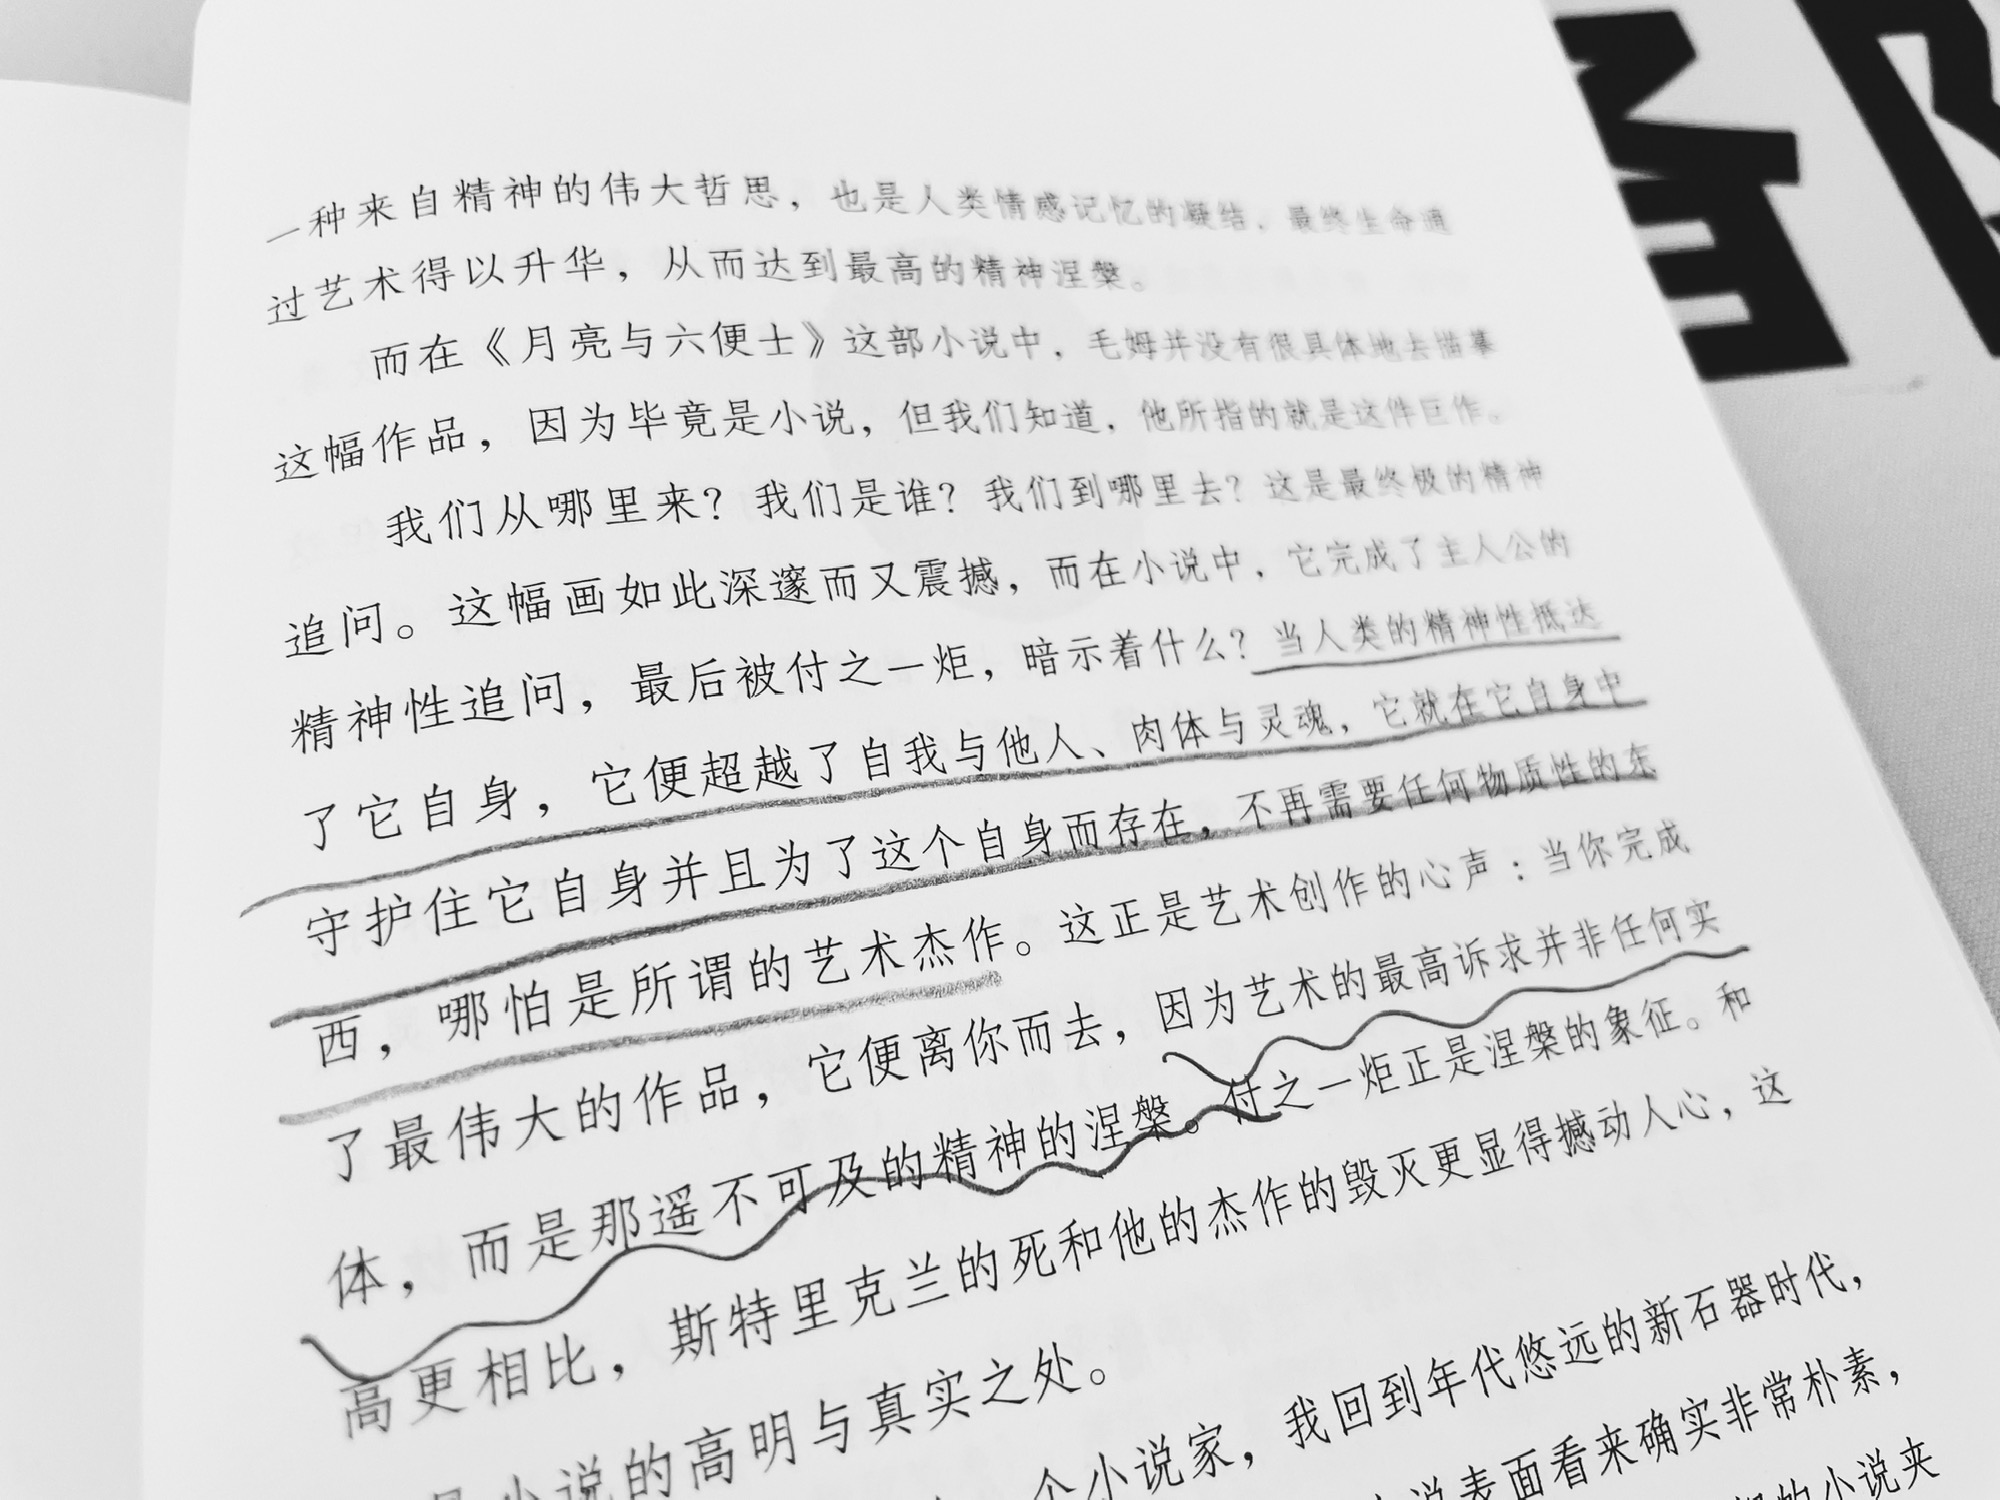 一种来自精神的伟大哲思，也是人类情感记忆的凝结，最终生命通
过艺术得以升华，从而达到最高的精神涅槃。
而在《月亮与六便士》这部小说中，毛姆并没有很具体地去描摹
这幅作品，因为毕竟是小说，但我们知道，他所指的就是这件巨作。
我们从哪里来？我们是谁？我们到哪里去？这是最终极的精神
追问。这幅画如此深邃而又震撼，而在小说中，它完成了主人公的
精神性追问，最后被付之一炬，暗示着什么？当人类的精神性抵达
了它自身，它便超越了自我与他人、肉体与灵魂，它就在它自身中
守护住它自身并且为了这个自身而存在，不再需要任何物质性的东
西，哪怕是所谓的艺术杰作。这正是艺术创作的心声：当你完成
了最伟大的作品，它便离你而去，因为艺术的最高诉求并非任何实
体，而是那遥不可及的精神的涅槃。付之一炬正是涅槃的象征。和
高更相比，斯特里克兰的死和他的杰作的毁灭更显得撼动人心，这
是小说的高明与真实之处。
个小说家，我回到年代悠远的新石器时代，
说表面看来确实非常朴素，
的小说夹